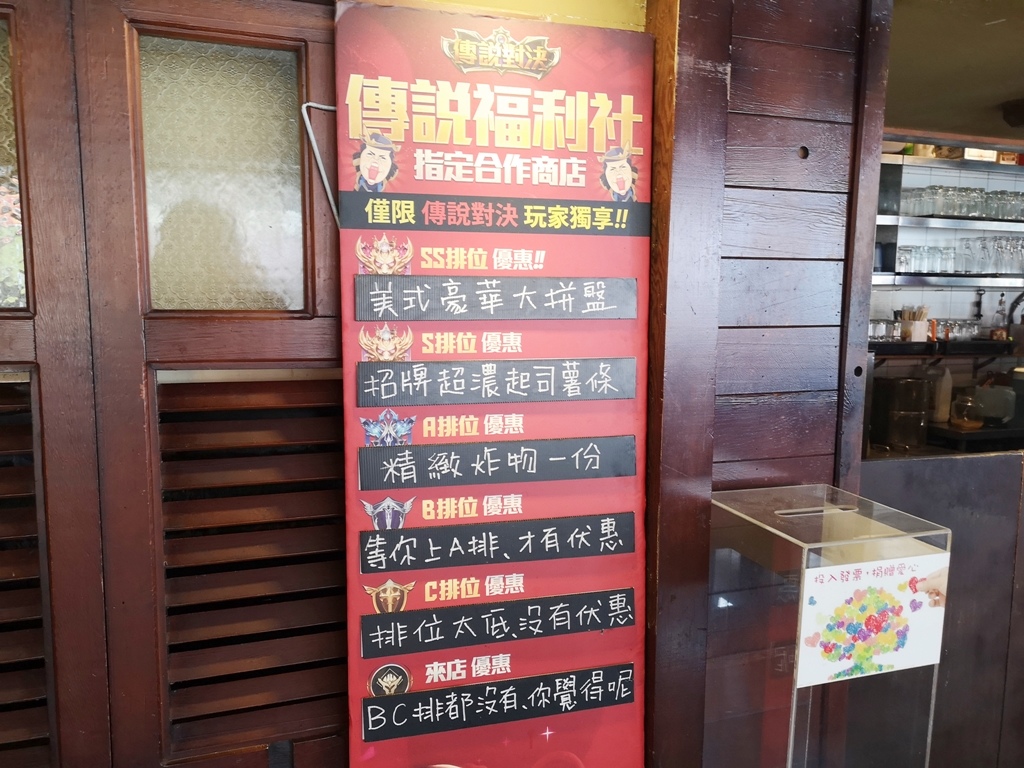 傳說對決
傳說福利社
指定合作商店
僅限 傳說對決 玩家獨享!!
SS排位 優惠!!
美式豪華大拼盤
S排位 優惠
招牌超濃起司薯條
A排位 優惠
精緻炸物一份
B排位 優惠
等你上A排、才有伏惠
C排位 優惠
排位太低、沒有伏惠
來店 優惠
BC排都沒有、你覺得呢
投入發票，捐贈愛心